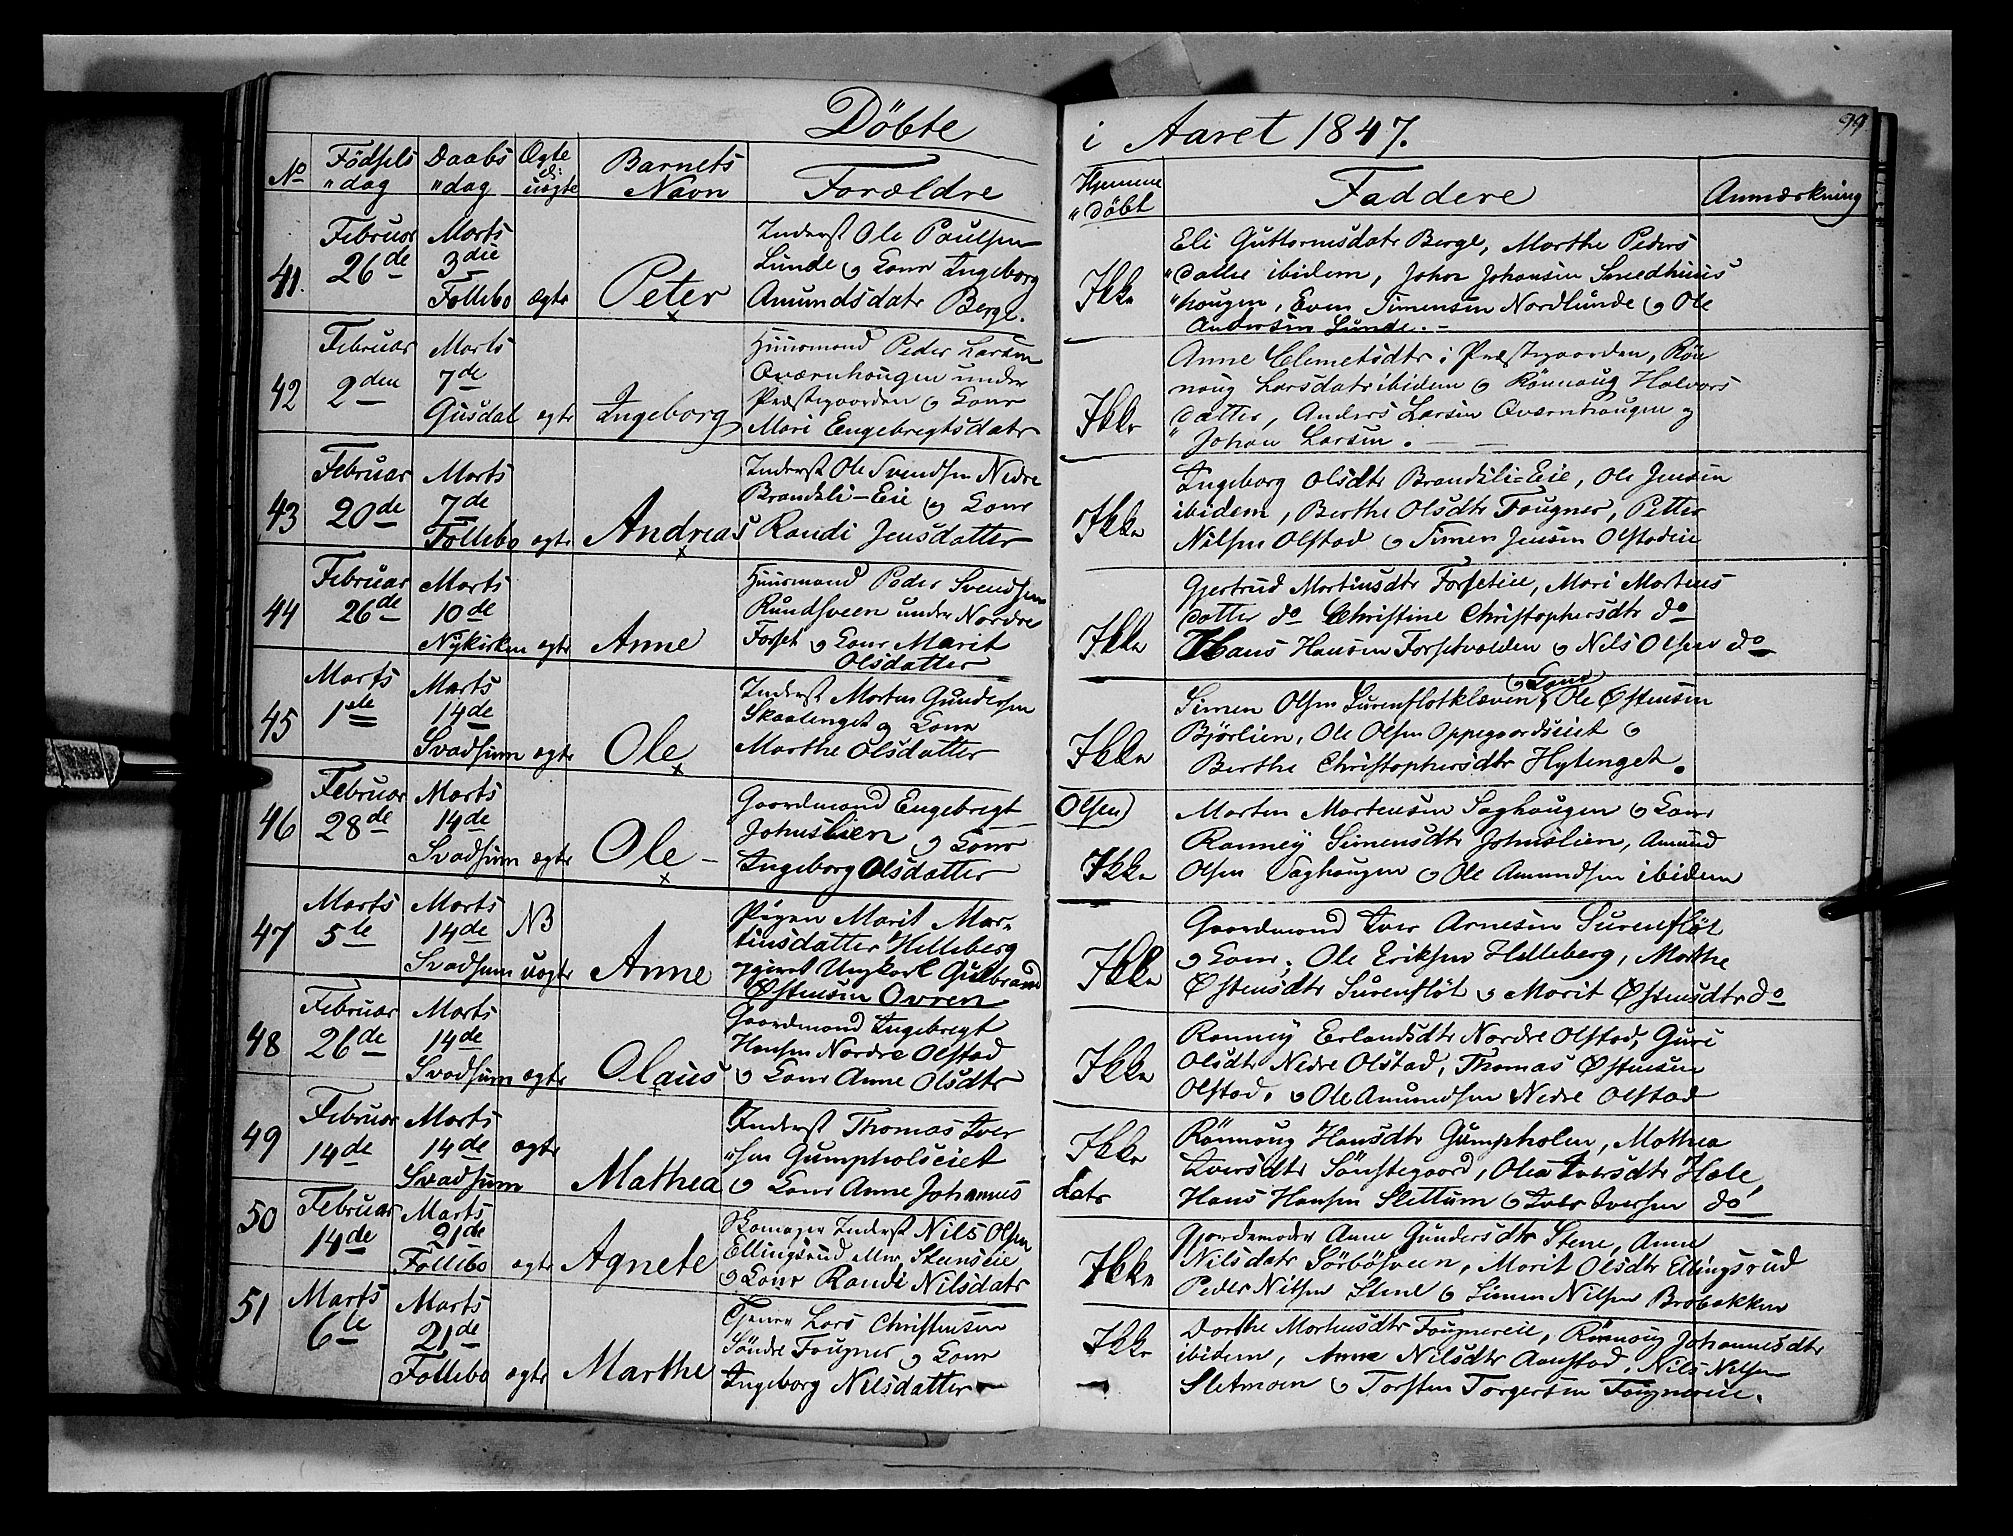 Döbte
i Aaret 1847.
99
No Födsels "dag Daabs "dag Ægte el: uægte Barnets Navn Forældre
Hjemme "döbt Faddere Anmærkning
41. Februar 26de Marts 3die Follebo ægte Peter
Inderst Ole Paulsen
Lunde og Kone Ingeborg
Amundsdatr Berge.
Ikke
Eli Guttormsdatr Berge, Marthe Peders
"datter ibidem, Johan Johansen Smedhuus
"hougen, Even Simensen Nordlunde og Ole
Andersen Lunde.
42 Februar 2den Marts 7de Gusdal ægte Ingeborg
Huusmand Peder Larsen
Qværnhougen under
Præstegaarden og Kone
Mari Engebregtsdatr
Ikke
Anne Clemetsdtr i Præstegaarden, Rön
noug Larsdatr ibidem og Rönnoug Halvors
datter, Anders Larsen Qværnhougen og
" Johan Larsen.
43 Februar 20de Marts 7de Follebo ægte Andreas
Inderst Ole Svendsen Nedre
Brandsli-Eie og Kone
Randi Jensdatter
Ikke
Ingeborg Olsdtr Brandsli-Eie, Ole Jensen
ibidem, Berthe Olsdtr Fougner, Petter
Nilsen Olstad og Simen Jensen Olstadeie
44 Februar 26de Marts 10de Nykirken ægte Anne
Huusmand Peder Svendsen
Rundsveen under Nordre
Forset og Kone Marit
Olsdatter
Ikke
Gjertrud Martinsdtr Forseteie, Mari Martins
datter do Christine Christophersdtr do
Hans Hansen Forsetvolden og Nils Olsen do
45 Marts 1ste Marts 14de Svadsum ægte Ole
Inderst Morten Gundersen
Skaalenget og Kone
Marthe Olsdatter
Ikke
og Kone
Simen Olsen Surenflotkleven, Ole Østensen
Björlien, Ole Olsen Oppegaardseiet og
Berthe Christophersdtr Hylenget.
46 Februar 28de Marts 14de Svadsum ægte Ole
Gaardmand Engebregt
Johnslien og Kone
Ingeborg Olsdatter
Olsen)
Ikke
Morten Mortensen Saghougen og Kone
Ranney Simensdtr Johnslien, Amund
Olsen Saghougen og Ole Amundsen ibidem
47 Marts 5te Marts 14de Svadsum NB uægte Anne
Pigen Marit Mar-
tinsdatter Helleberg
opgivet Ungkarl Gulbrand
Østensen Ovren
Ikke
Gaardmand Iver Arnesen Surenflöt
og Kone, Ole Eriksen Helleberg, Marthe
Østensdtr Surenflöt og Marit Østensdtr do
48 Februar 26de Marts 14de Svadsum ægte Olaus
Gaardmand Ingebregt
Hansen Nordre Olstad
og Kone Anne Olsdtr
Ikke
Ranney Erlandsdtr Nordre Olstad, Guri
Olsdtr Nedre Olstad, Thomas Østensen
Olstad, og Ole Amundsen Nedre Olstad
49 Februar 14de Marts 14de Svadsum ægte Mathea
Inderst Thomas Iver
"sen Gumpholseiet
og Kone Anne Johannes
datr
Ikke
Rönnoug Hansdtr Gumpholen, Mathea
Iversdtr Sönstegaard, Olea Iversdtr Hole,
Hans Hansen Slettum og Iver Iversen do
50 Februar 14de Marts 21de Follebo ægte Agnete
Skomager Inderst Nils Olsen
Ellingsrud eller Stenseie
og Kone Randi Nilsdatr
Ikke
Gjordemoder Anne Gundersdtr Stene, Anne
Nilsdatr Sörbösveen, Marit Olsdtr Ellingsrud
Peder Nilsen Stene og Simen Nilsen Brobakken
51 Marts 6te Marts 21de Follebo ægte Marthe
Tjener Lars Christensen
Söndre Fougner og Kone
Ingeborg Nilsdatter
Ikke
Dorthe Mortensdtr Fougnereie, Rönnoug Johannesdtr
ibidem, Anne Nilsdtr Aanstad, Nils Nilsen
Sletmoen og Torsten Torgersen Fougnereie.